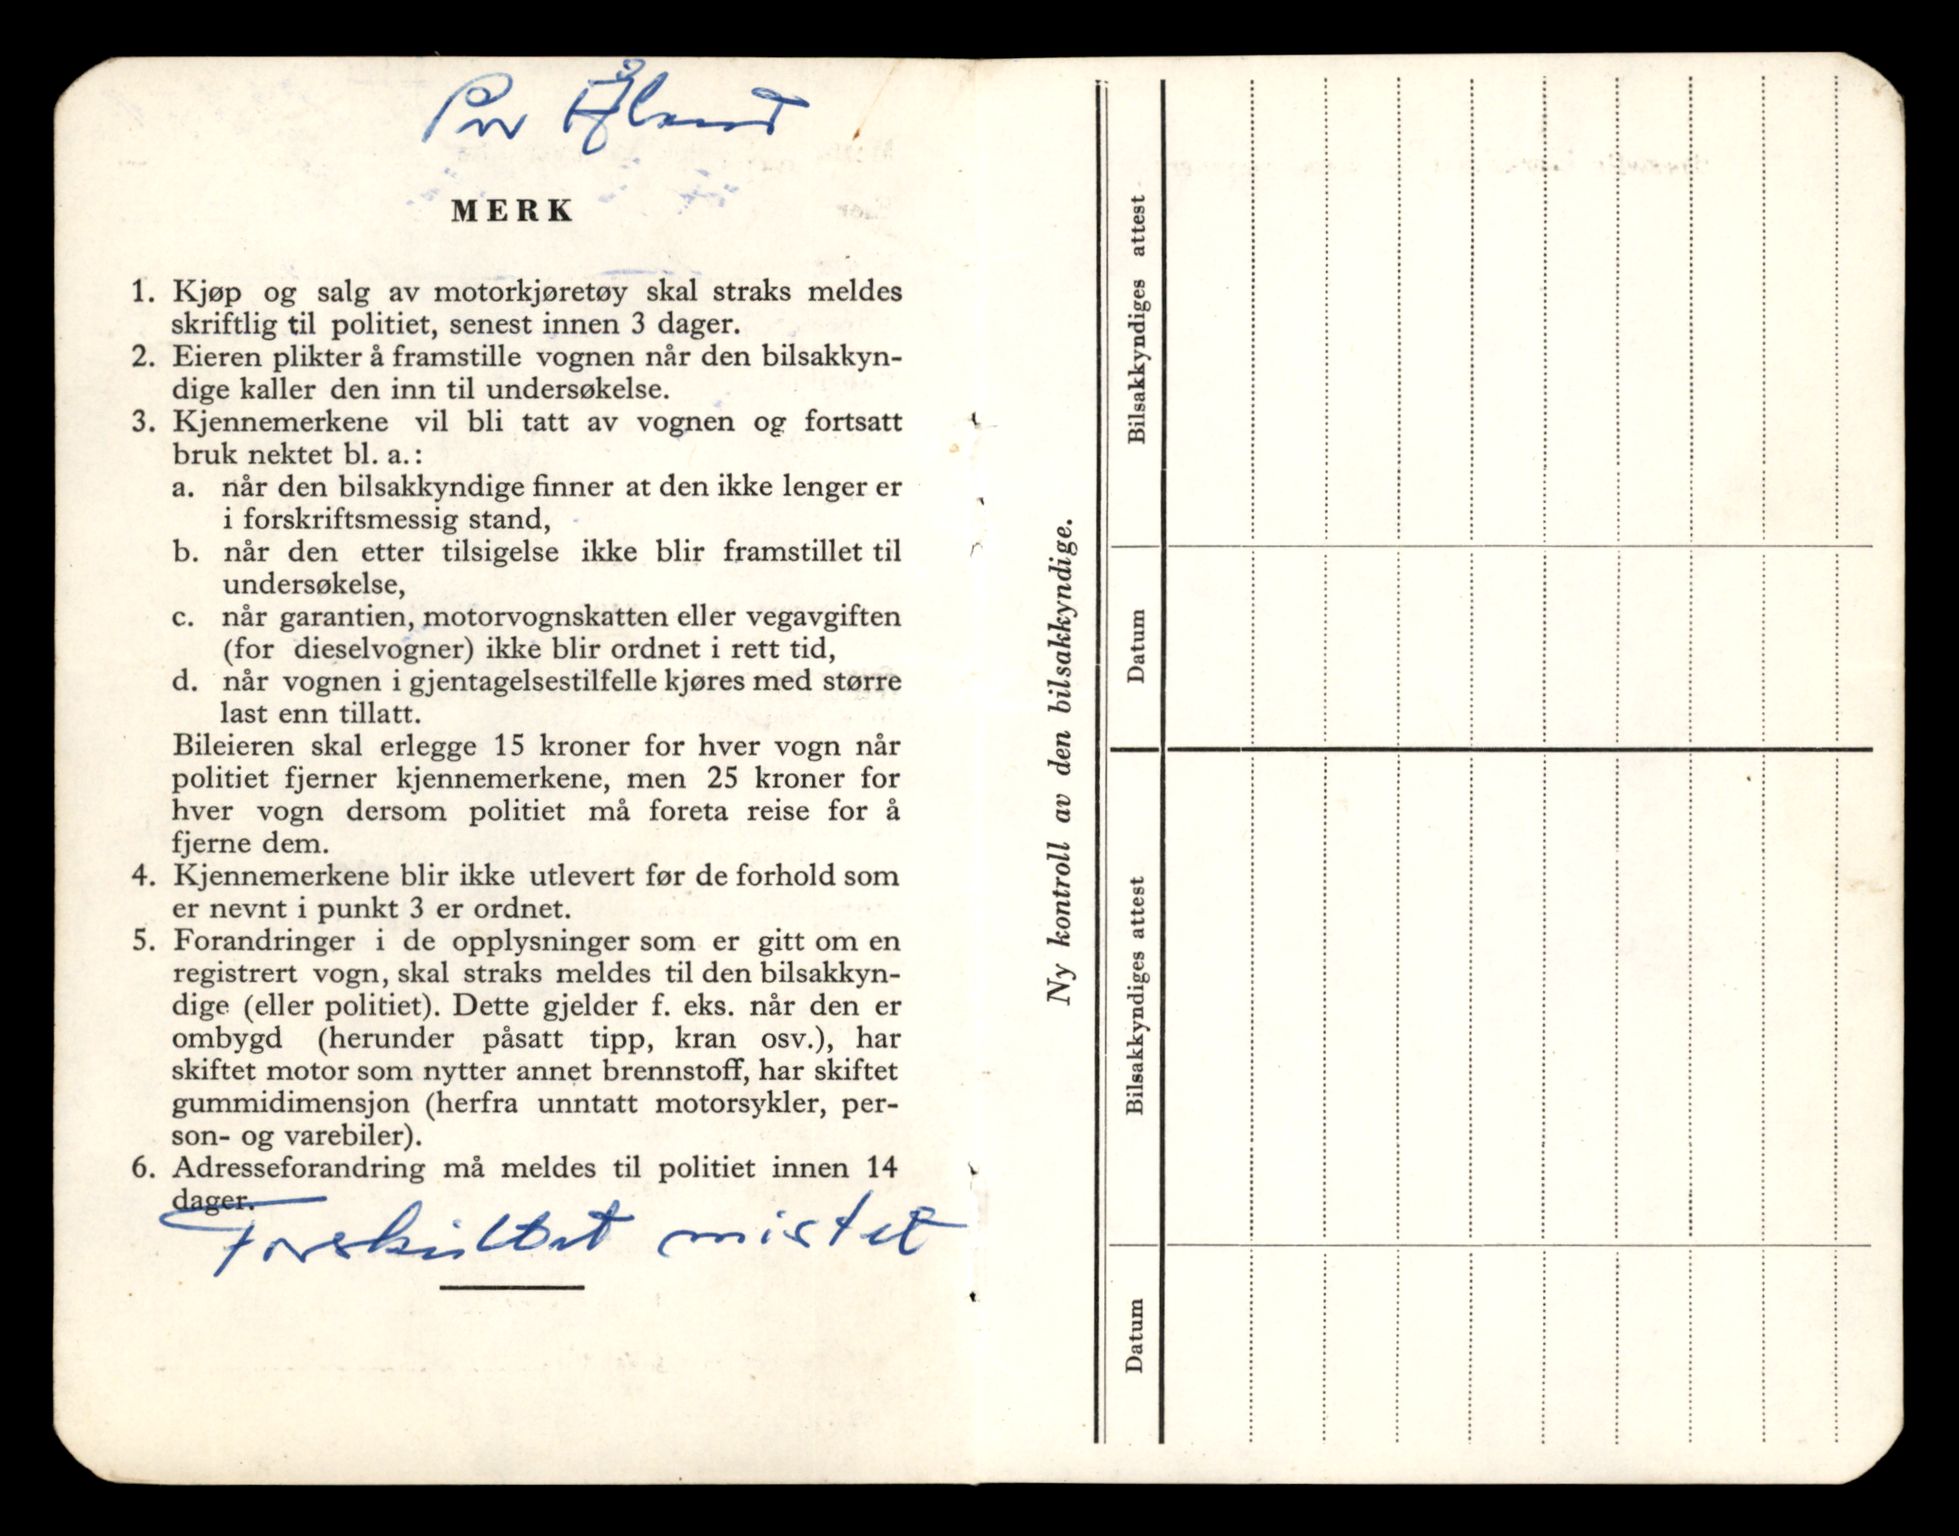 Per Åland
MERK
1. Kjøp og salg av motorkjøretøy skal straks meldes
skriftlig til politiet, senest innen 3 dager.
2. Eieren plikter å framstille vognen når den bilsakkyn-
dige kaller den inn til undersøkelse.
3. Kjennemerkene vil bli tatt av vognen og fortsatt
bruk nektet bl. a.:
a. når den bilsakkyndige finner at den ikke lenger er
i forskriftsmessig stand,
b. når den etter tilsigelse ikke blir framstillet til
undersøkelse,
c. når garantien, motorvognskatten eller vegavgiften
(for dieselvogner) ikke blir ordnet i rett tid,
d. når vognen i gjentagelsestilfelle kjøres med større
last enn tillatt.
Bileieren skal erlegge 15 kroner for hver vogn når
politiet fjerner kjennemerkene, men 25 kroner for
hver vogn dersom politiet må foreta reise for å
fjerne dem.
4. Kjennemerkene blir ikke utlevert før de forhold som
er nevnt i punkt 3 er ordnet.
5. Forandringer i de opplysninger som er gitt om en
registrert vogn, skal straks meldes til den bilsakkyn-
dige (eller politiet). Dette gjelder f. eks. når den er
ombygd (herunder påsatt tipp, kran osv.), har
skiftet motor som nytter annet brennstoff, har skiftet
gummidimensjon (herfra unntatt motorsykler, per-
son- og varebiler).
6. Adresseforandring må meldes til politiet innen 14
dager.
Forskiltet mistet
Ny kontroll av den bilsakkyndige.
Datum
Bilsakkyndiges attest
Datum
Bilsakkyndiges attest